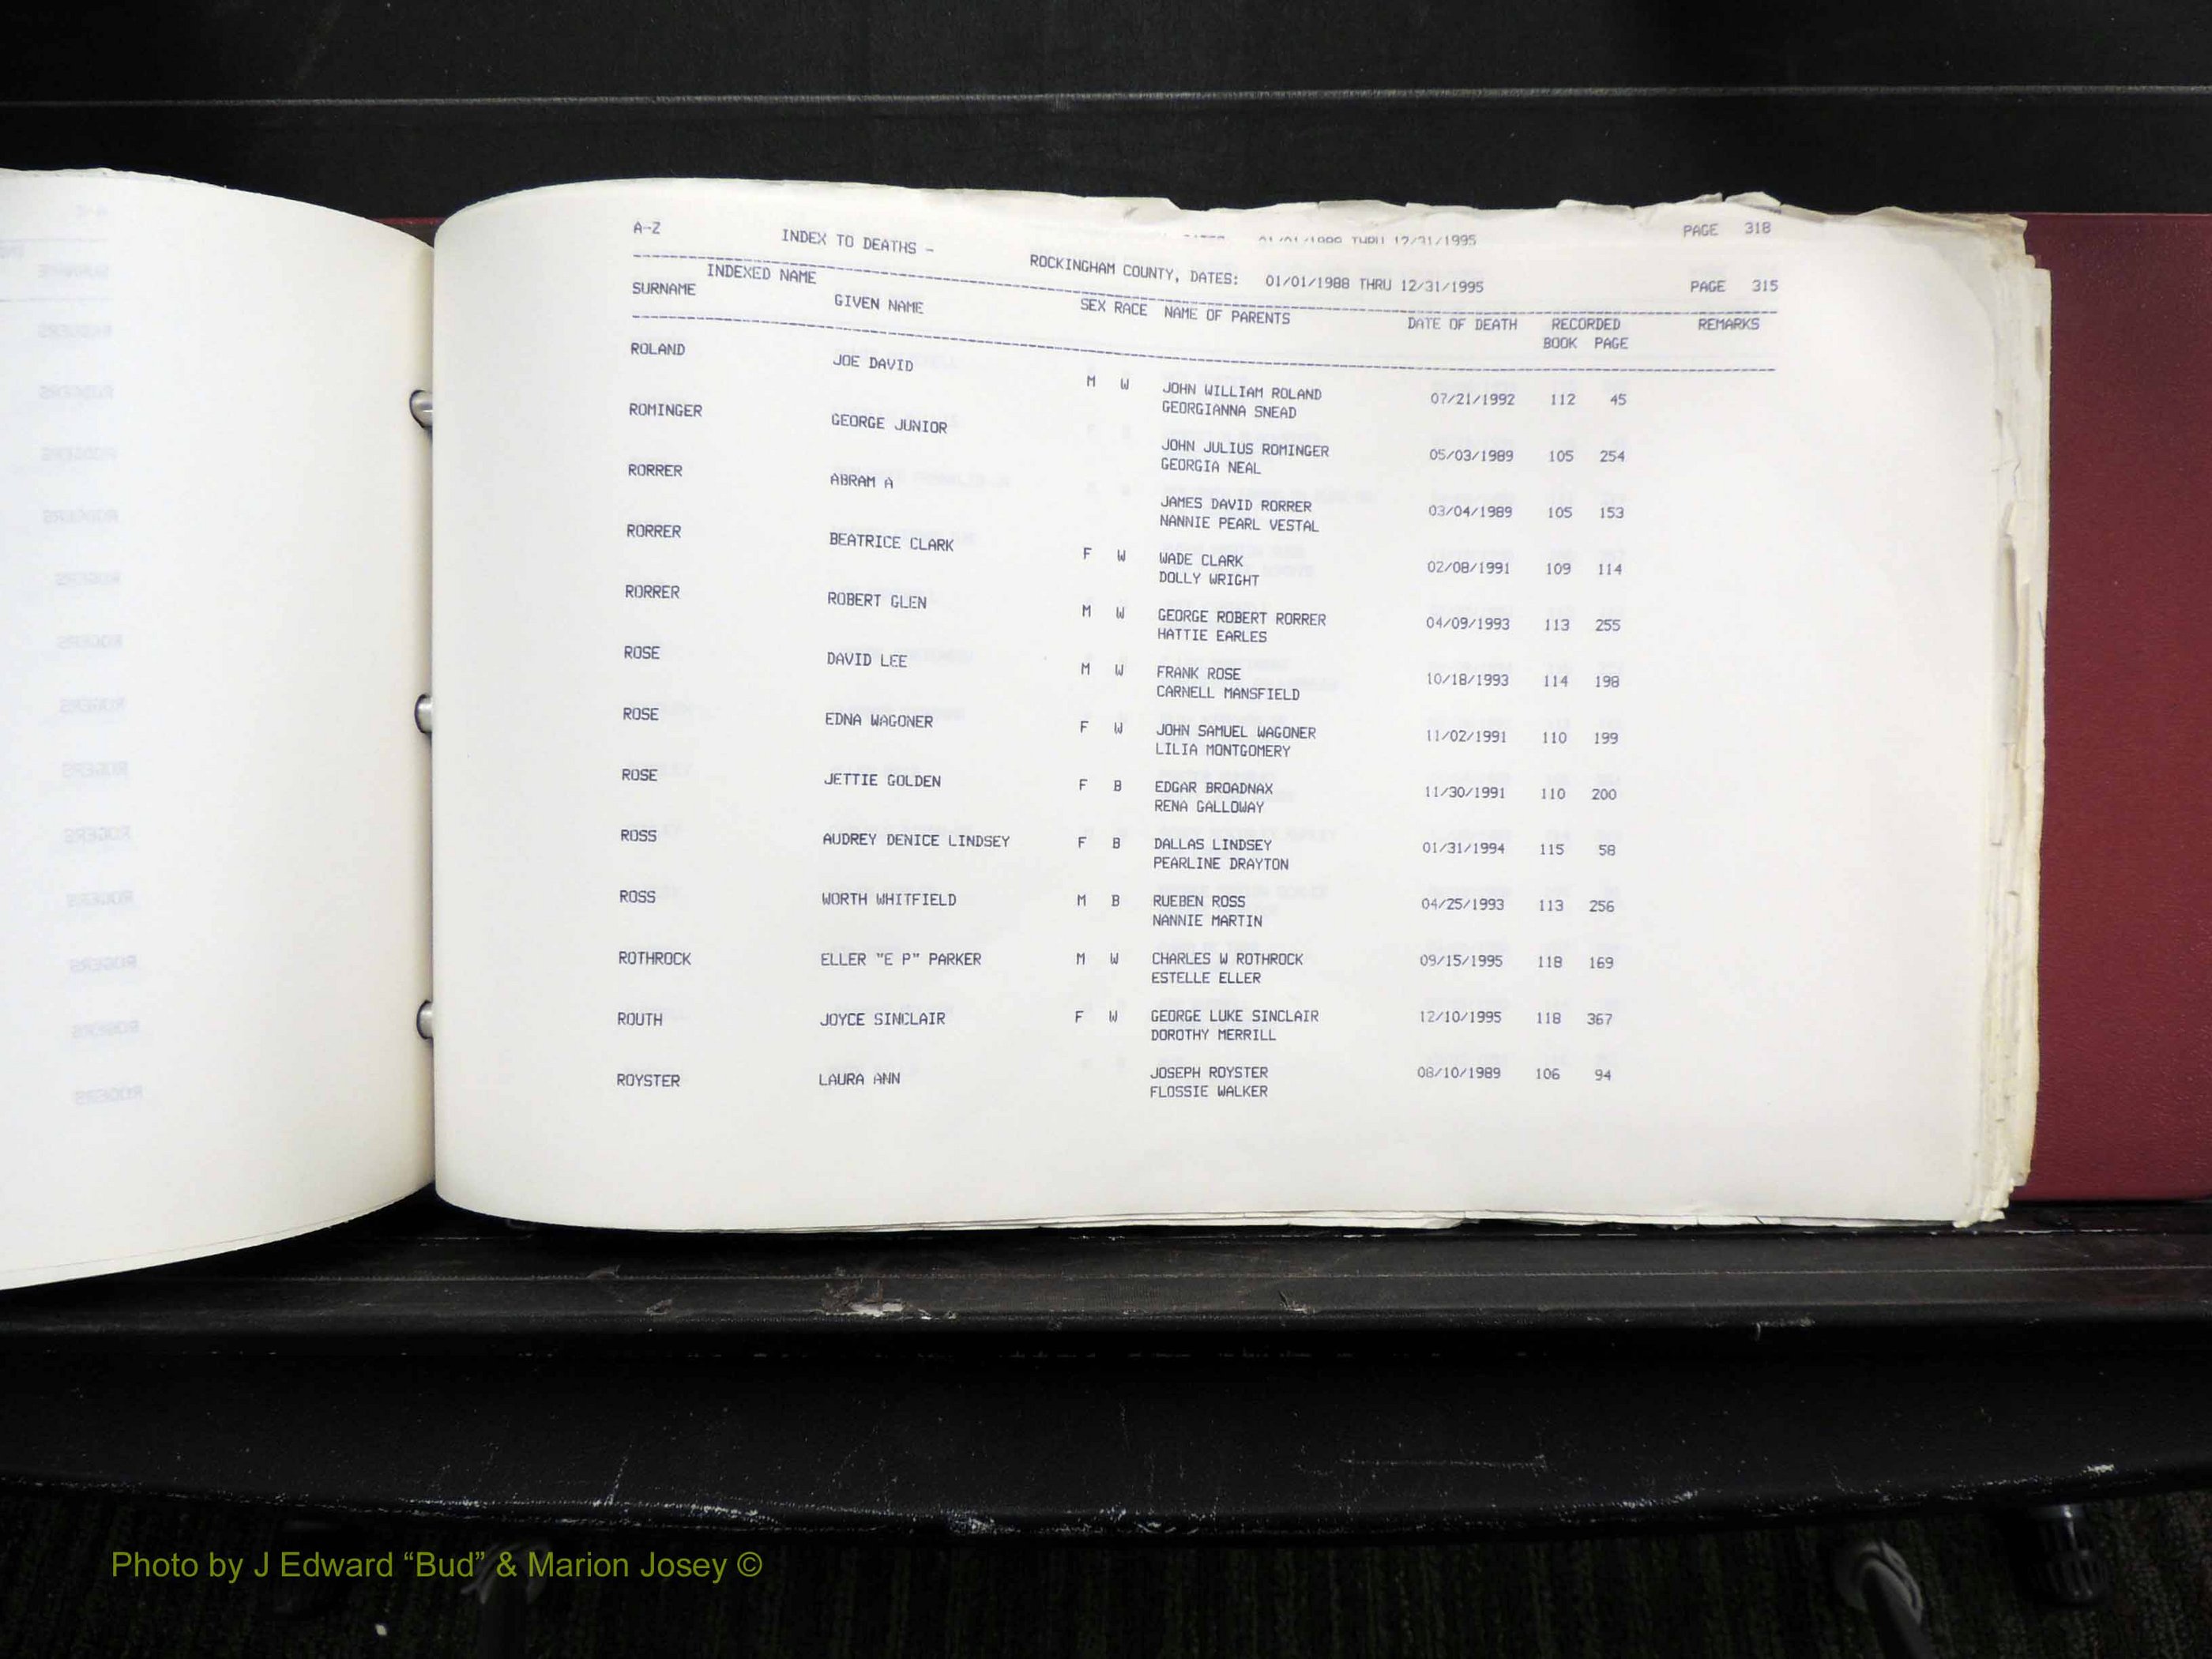 PAGE 318
12/31/1995
A-Z INDEX TO DEATHS - ROCKINGHAM COUNTY, DATES: 01/01/1988 THRU 12/31/1995 PAGE 315
INDEXED NAME
SURNAME GIVEN NAME SEX RACE NAME OF PARENTS DATE OF DEATH RECORDED REMARKS
BOOK PAGE
ROLAND JOE DAVID M W JOHN WILLIAM ROLAND 07/21/1992 112 45
GEORGIANNA SNEAD
ROMINGER GEORGE JUNIOR JOHN JULIUS ROMINGER 05/03/1989 105 254
GEORGIA NEAL
RORRER ABRAM A JAMES DAVID RORRER 03/04/1989 105 153
NANNIE PEARL VESTAL
RORRER BEATRICE CLARK F W WADE CLARK 02/08/1991 109 114
DOLLY WRIGHT
RORRER ROBERT GLEN M W GEORGE ROBERT RORRER 04/09/1993 113 255
HATTIE EARLES
ROSE DAVID LEE M W FRANK ROSE 10/18/1993 114 198
CARNELL MANSFIELD
ROSE EDNA WAGONER F W JOHN SAMUEL WAGONER 11/02/1991 110 199
LILIA MONTGOMERY
ROSE JETTIE GOLDEN F B EDGAR BROADNAX 11/30/1991 110 200
RENA GALLOWAY
ROSS AUDREY DENICE LINDSEY F B DALLAS LINDSEY 01/31/1994 115 58
PEARLINE DRAYTON
ROSS WORTH WHITFIELD M B RUEBEN ROSS 04/25/1993 113 256
NANNIE MARTIN
ROTHROCK ELLER "E P" PARKER M W CHARLES W ROTHROCK 09/15/1995 118 169
ESTELLE ELLER
ROUTH JOYCE SINCLAIR F W GEORGE LUKE SINCLAIR 12/10/1995 118 367
DOROTHY MERRILL
ROYSTER LAURA ANN JOSEPH ROYSTER 08/10/1989 106 94
FLOSSIE WALKER
Photo by J Edward “Bud” & Marion Josey ©